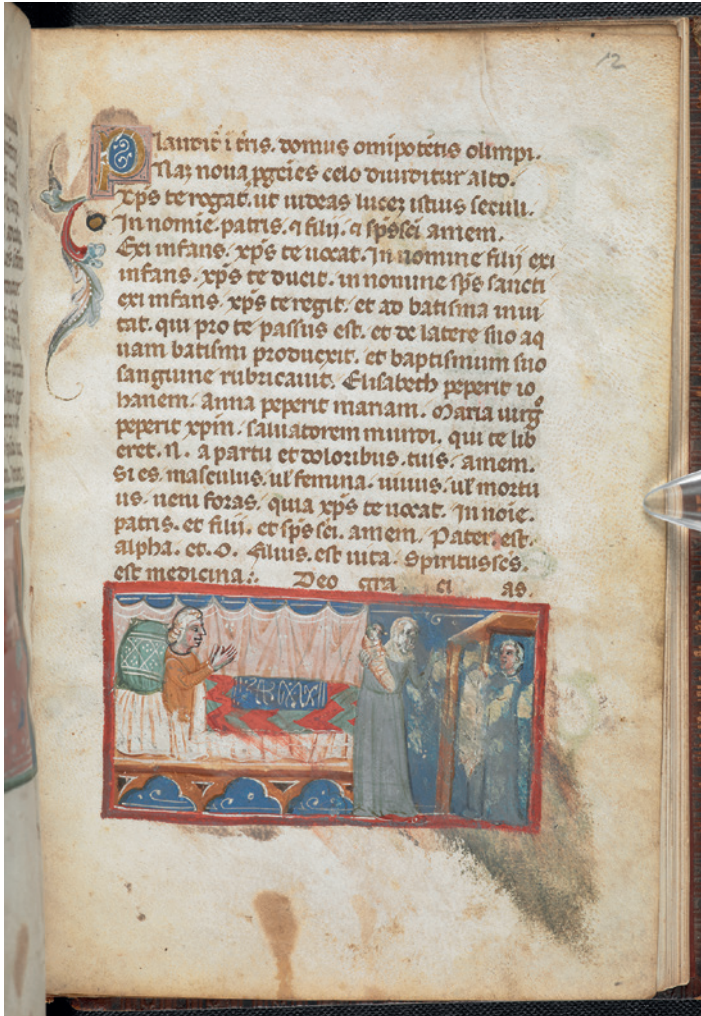 12
Plaudit i tris. domus omipotetis olimpi.
Naz noua pgeies celo diuiditur alto.
xps te rogat. ut uideas lucez istius seculi.
In nomie. patris. ⁊ filii. ⁊ spssci amem.
Exi infans. xps te uocat. In nomine filij exi
infans. xps te ducit. in nomine sps sancti
exi infans. xps te regit. et ad batisma inui
tat. qui pro te passus est. et de latere suo aq
uam batismi produexit. et baptismum suo
sanguine rubricauit. Elisabeth peperit io
hanem. anna peperit mariam. Maria uirgo
peperit xpm. saluatorem mundi. qui te lib
eret. N. a partu et doloribus. tuis. amem.
Si es. masculus. ul femina. uiuus. ul mortu
us. neni foras. quia xps te uocat. In noie.
patris. et filii. et spssci. amem. Pater. est.
alpha. et. O. filius. est uita. Spiritusscs.
est medicina :. Deo gra ci as.